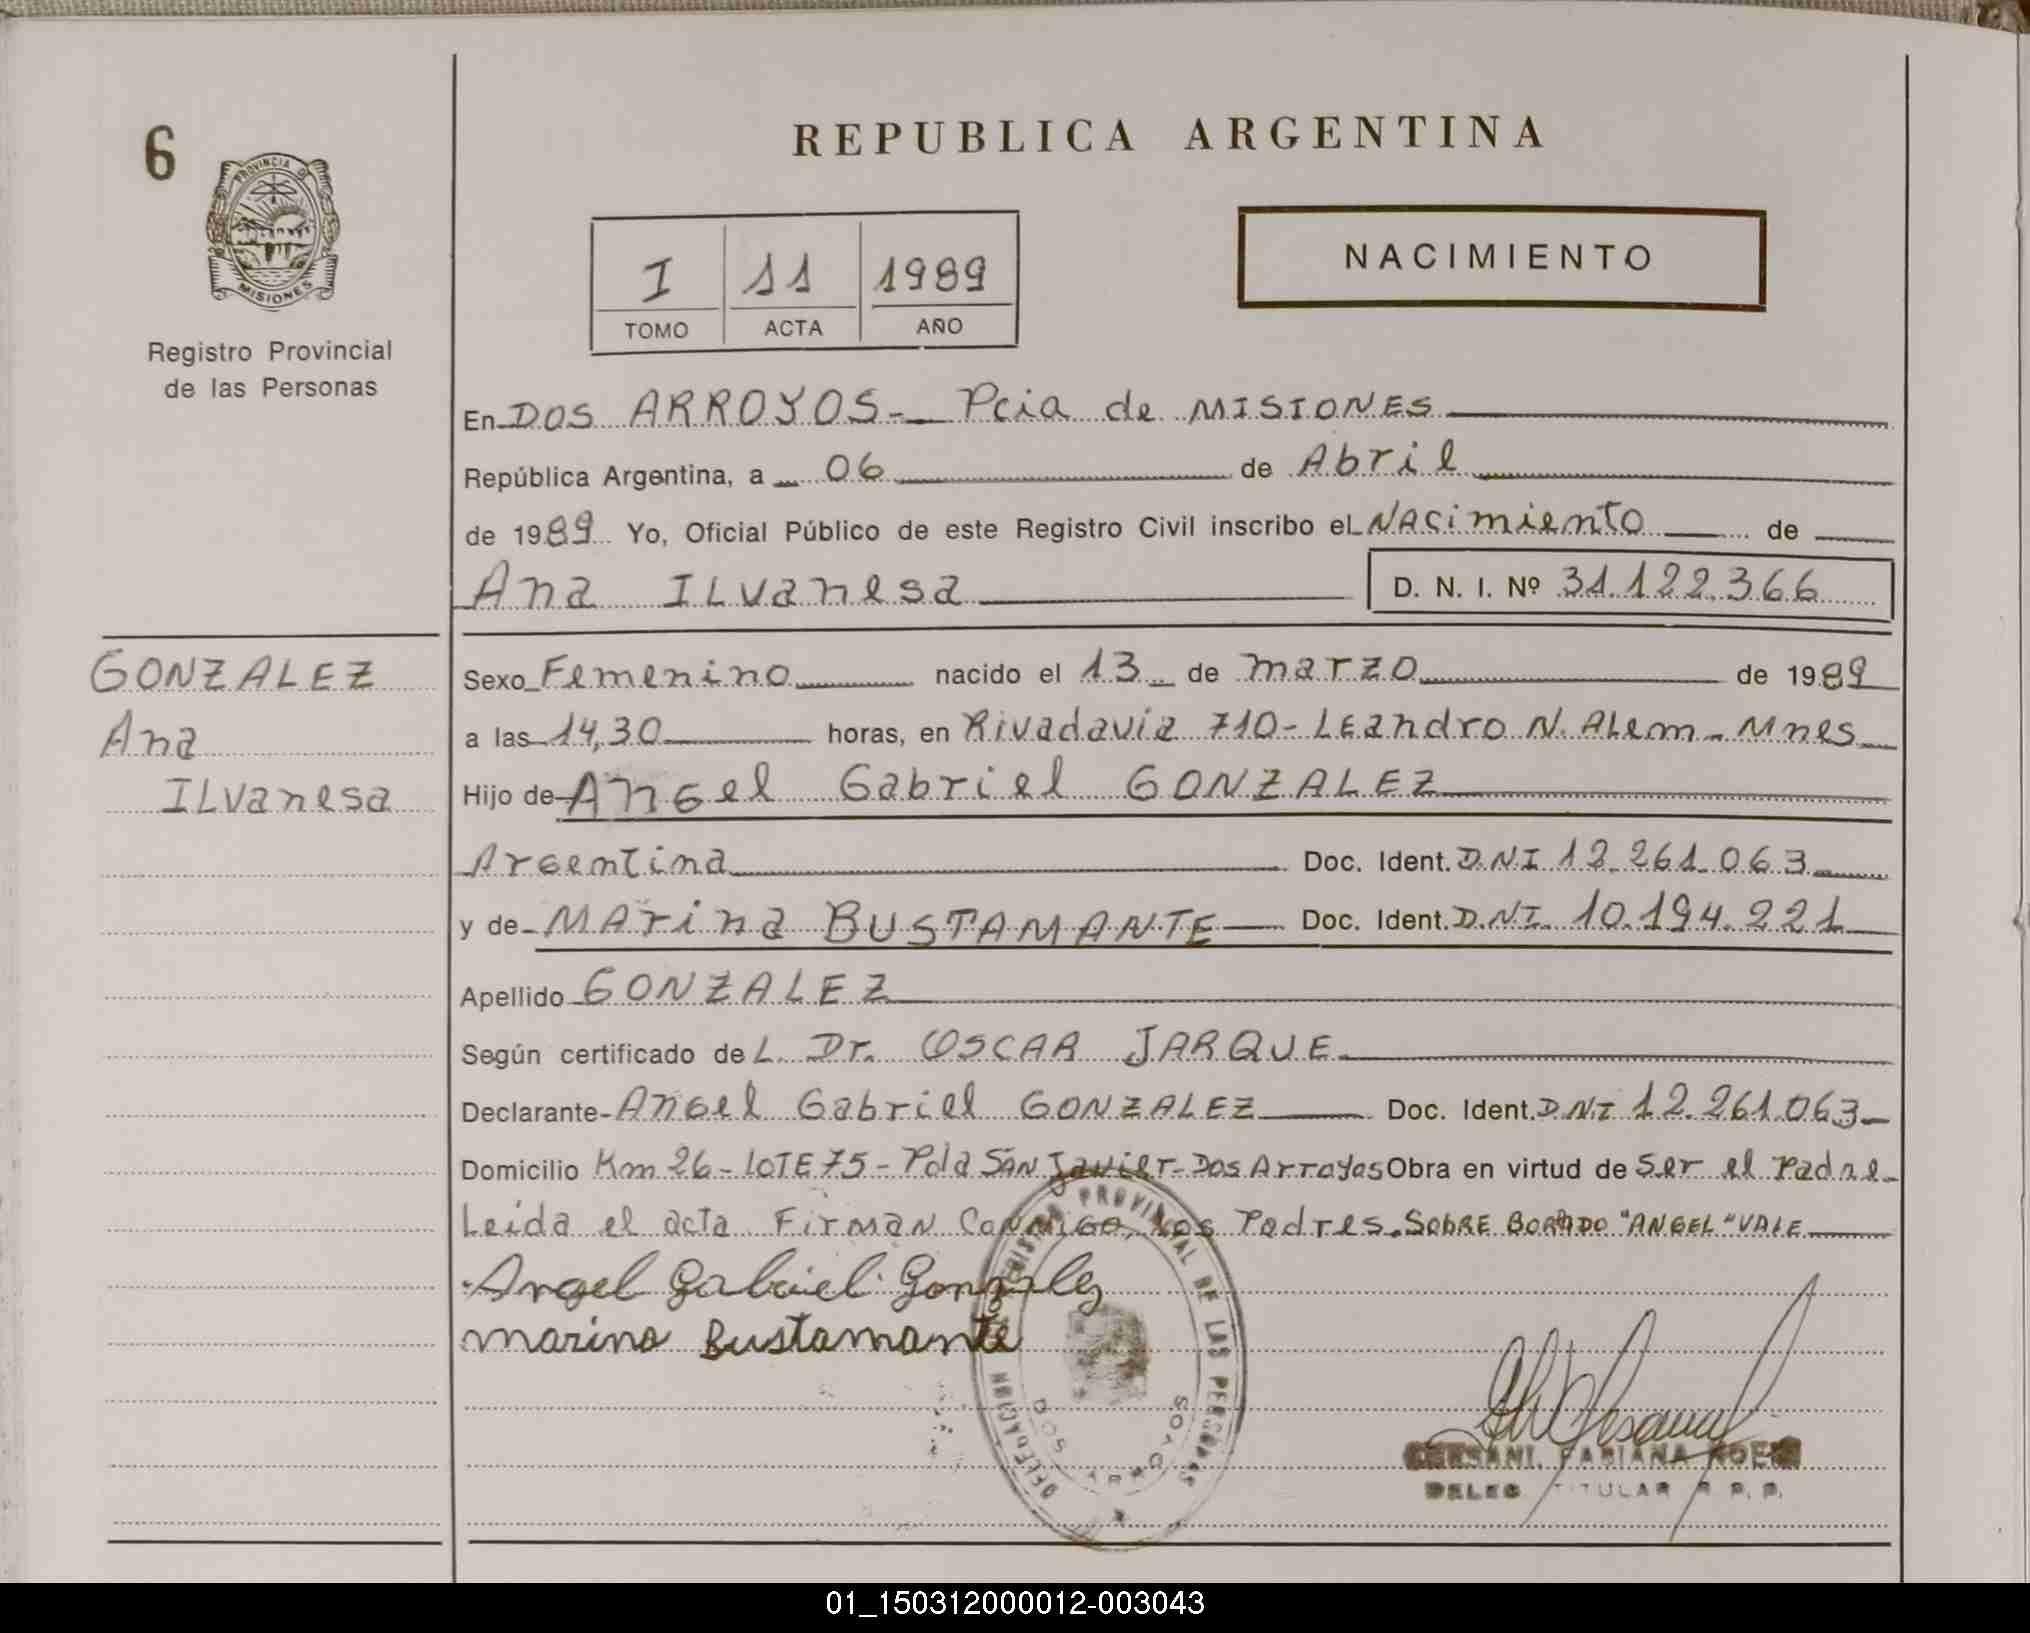 6
PROVINCIA DE
MISIONES
Registro Provincial
de las Personas
REPUBLICA ARGENTINA
NACIMIENTO
I 11 1989
TOMO ACTA AÑO
En DOS ARROYOS - Pcia de MISIONES
República Argentina, a 06 de Abril
de 1989 Yo, Oficial Público de este Registro Civil inscribo el NAcimiento de
Ana ILvanesa D. N. I. Nº 31.122.366
GONZALEZ
Ana
ILvanesa
Sexo Femenino nacido el 13 de marzo de 1989
a las 14,30 horas, en Rivadavia 710 - LEandro N. ALem - Mnes
Hijo de Angel Gabriel GONZALEZ
Argentina Doc. Ident. D.N.I 12.261.063
y de MArina BUSTAMANTE Doc. Ident. D.N.I. 10.194.221
Apellido GONZALEZ
Según certificado de L. Dr. OSCAR JARQUE
Declarante - Angel Gabriel GONZALEZ Doc. Ident. D.N.I 12.261.063
Domicilio Km 26 - LOTE 75 - Pda SAN Javier - Dos Arroyos Obra en virtud de Ser el Padre
Leida el acta Firman Conmigo, Los Padres. SOBRE BORADO "ANGEL" VALE
Angel Gabriel Gonzalez
marina Bustamante
DELEGACION REGISTRO PROVINCIAL DE LAS PERSONAS
DOS ARROYOS
FABIANA NOEMI
DELEG TITULAR R. P. P.
01_150312000012-003043